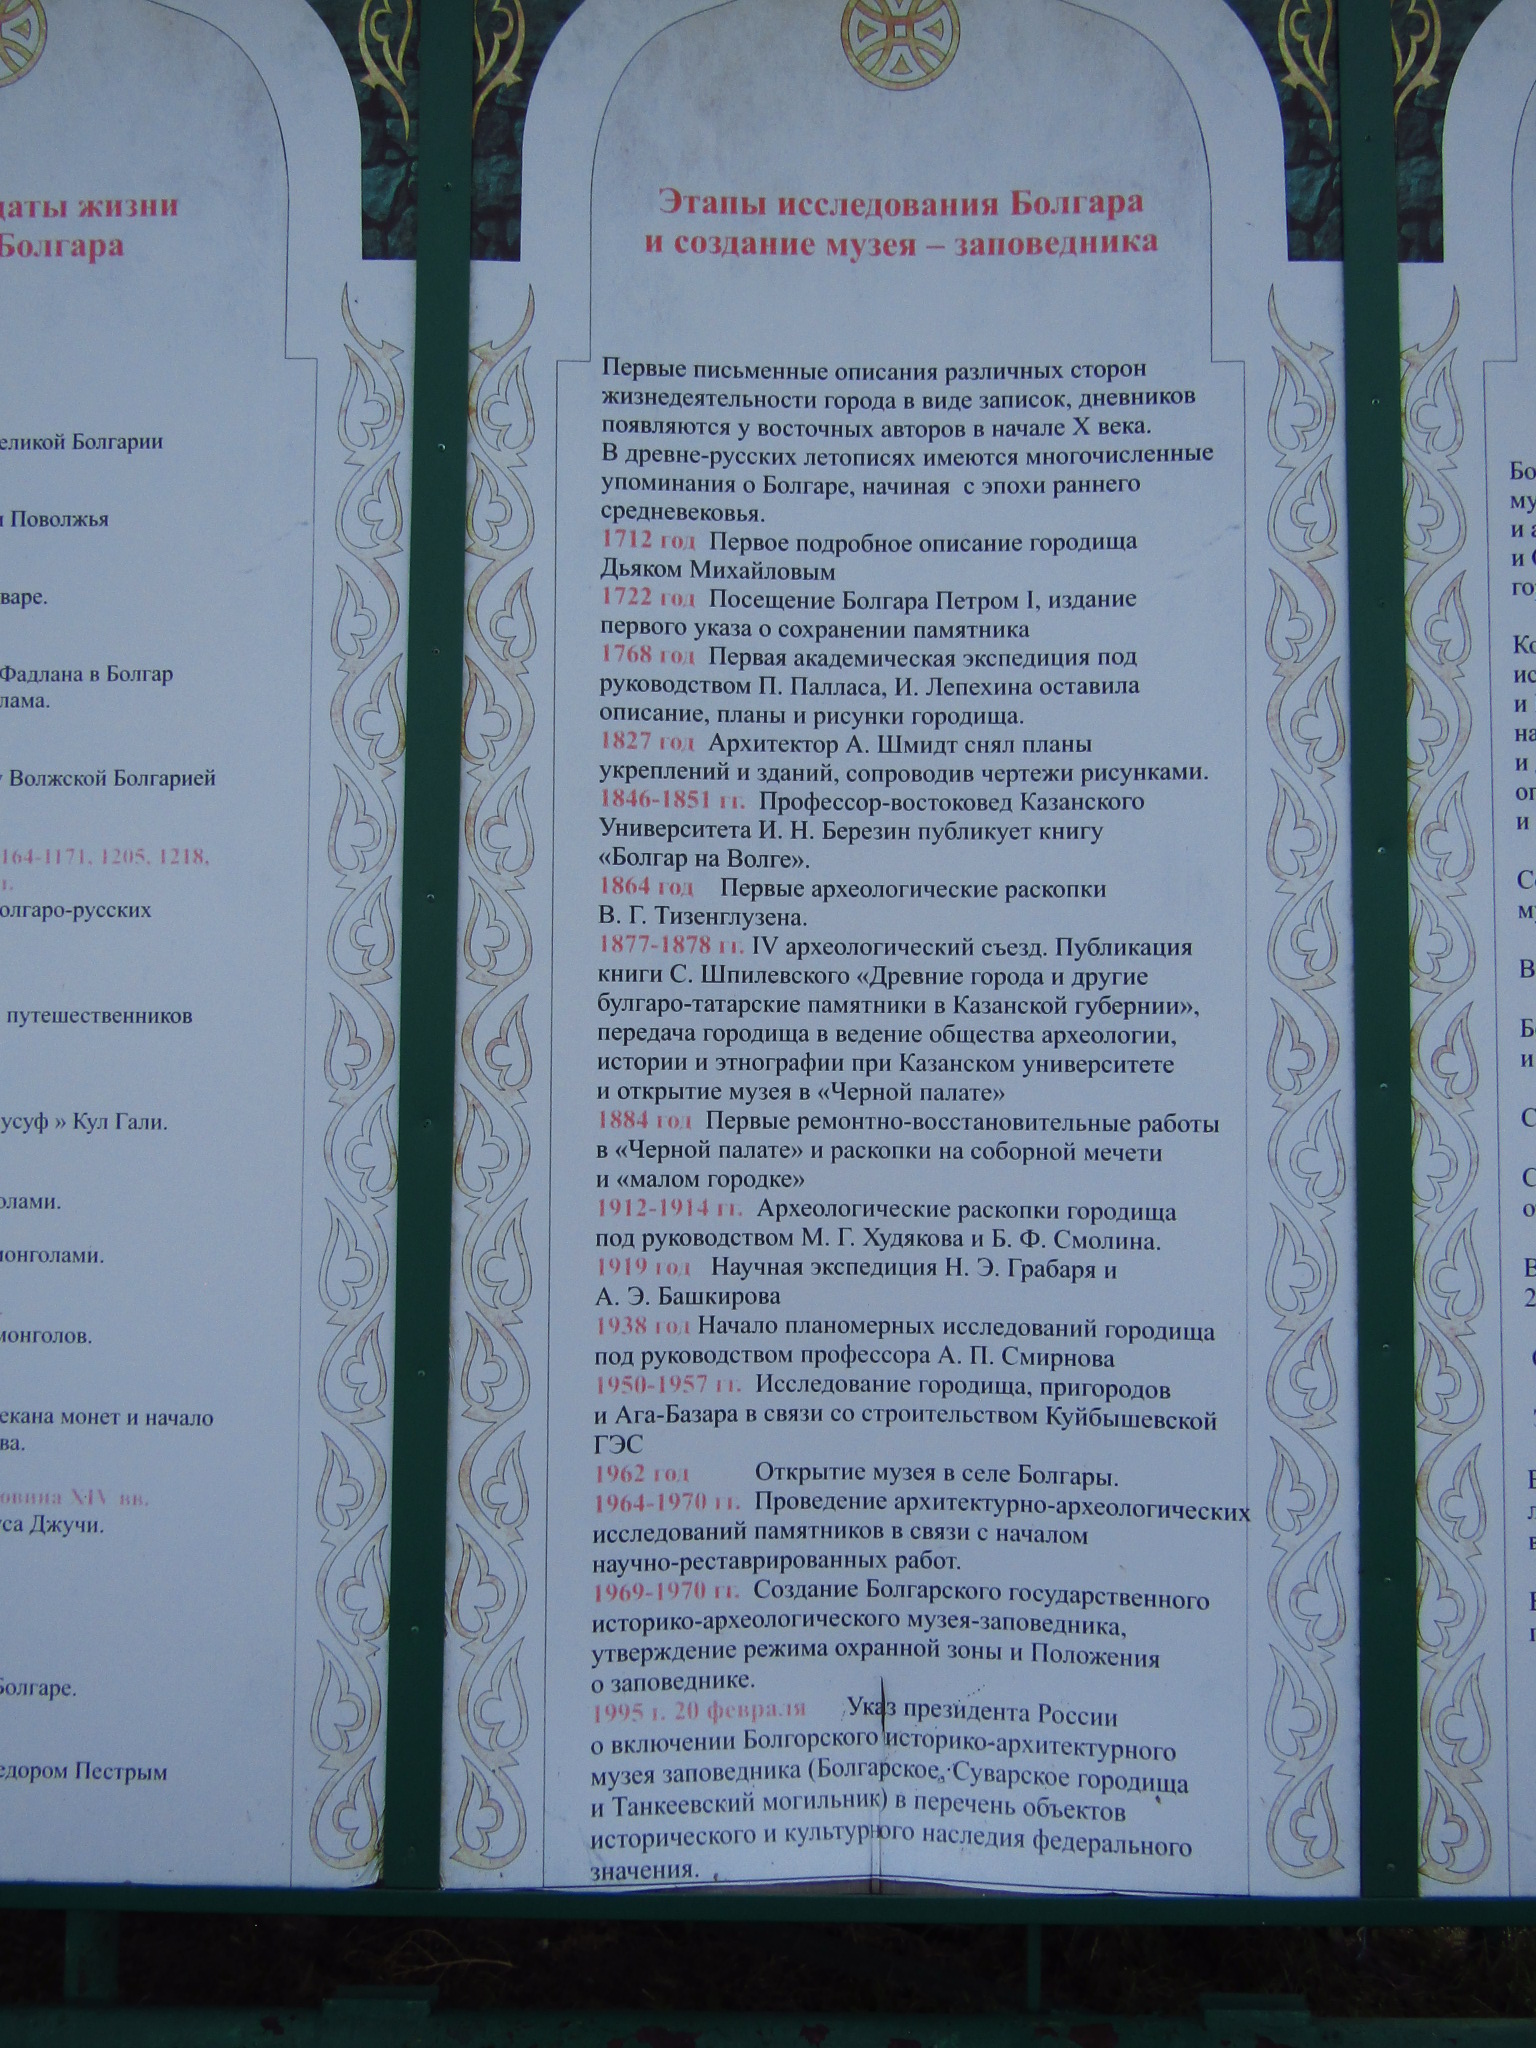 даты жизни
Болгара
еликой Болгарии
Поволжья
варе.
Фадлана в Болгар
лама.
Волжской Болгарией
164-1171, 1205, 1218,
г.
олгаро-русских
путешественников
усуф » Кул Гали.
олами.
монголами.
монголов.
екана монет и начало
ва.
овина XIV вв.
са Джучи.
Болгаре.
едором Пестрым
Этапы исследования Болгара
и создание музея – заповедника
Первые письменные описания различных сторон
жизнедеятельности города в виде записок, дневников
появляются у восточных авторов в начале X века.
В древне-русских летописях имеются многочисленные
упоминания о Болгаре, начиная с эпохи раннего
средневековья.
1712 год Первое подробное описание городища
Дьяком Михайловым
1722 год Посещение Болгара Петром I, издание
первого указа о сохранении памятника
1768 год Первая академическая экспедиция под
руководством П. Палласа, И. Лепехина оставила
описание, планы и рисунки городища.
1827 год Архитектор А. Шмидт снял планы
укреплений и зданий, сопроводив чертежи рисунками.
1846-1851 гг. Профессор-востоковед Казанского
Университета И. Н. Березин публикует книгу
«Болгар на Волге».
1864 год Первые археологические раскопки
В. Г. Тизенглузена.
1877-1878 гг. IV археологический съезд. Публикация
книги С. Шпилевского «Древние города и другие
булгаро-татарские памятники в Казанской губернии»,
передача городища в ведение общества археологии,
истории и этнографии при Казанском университете
и открытие музея в «Черной палате»
1884 год Первые ремонтно-восстановительные работы
в «Черной палате» и раскопки на соборной мечети
и «малом городке»
1912-1914 гг. Археологические раскопки городища
под руководством М. Г. Худякова и Б. Ф. Смолина.
1919 год Научная экспедиция Н. Э. Грабаря и
А. Э. Башкирова
1938 год Начало планомерных исследований городища
под руководством профессора А. П. Смирнова
1950-1957 гг. Исследование городища, пригородов
и Ага-Базара в связи со строительством Куйбышевской
ГЭС
1962 год Открытие музея в селе Болгары.
1964-1970 гг. Проведение архитектурно-археологических
исследований памятников в связи с началом
научно-реставрированных работ.
1969-1970 гг. Создание Болгарского государственного
историко-археологического музея-заповедника,
утверждение режима охранной зоны и Положения
о заповеднике.
1995 г. 20 февраля Указ президента России
о включении Болгорского историко-архитектурного
музея заповедника (Болгарское, Суварское городища
и Танкеевский могильник) в перечень объектов
исторического и культурного наследия федерального
значения.